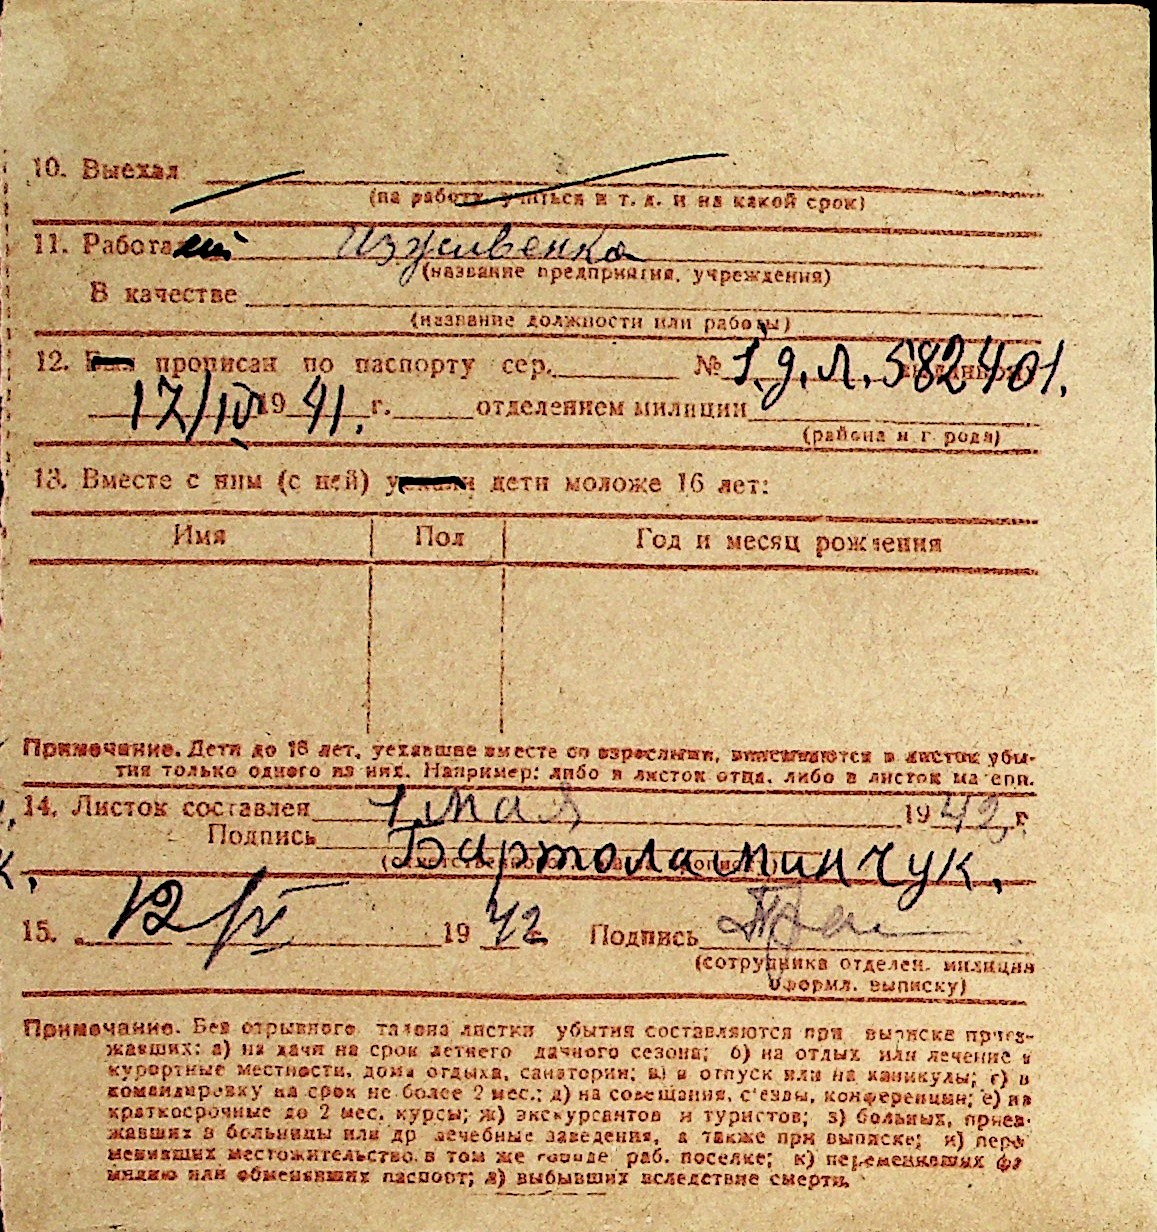 10. Выехал
(на работу, учиться и т. д. и на какой срок)
11. Работа Иждивенка
(название предприятия, учреждения)
В качестве
(название должности или работы)
12. прописан по паспорту сер. № 1.д.л. 582401.
17/IV 1941. г. отделением милиции
(района и города)
13. Вместе с ним (с ней) дети моложе 16 лет:
Имя Пол Год и месяц рождения
Примечание. Дети до 16 лет, уехавшие вместе со взрослыми, вписываются в листок убы-
тия только одного из них. Например: либо в листок отца, либо в листок матери.
14. Листок составлен 1 мая 1942 г
Подпись Бартоламинчук.
к.
15. 12/V 1942 Подпись
(сотрудника отделен. милиции
оформл. выписку)
Примечание. Без отрывного талона листки убытия составляются при выписке приез-
жавших: а) на дачи на срок летнего дачного сезона; б) на отдых или лечение в
курортные местности, дома отдыха, санатории; в) в отпуск или на каникулы; г) в
командировку на срок не более 2 мес.; д) на совещания, с'езды, конференции; е) на
краткосрочные до 2 мес. курсы; ж) экскурсантов и туристов; з) больных, приез-
жавших в больницы или др лечебные заведения, а также при выписке; и) пере
менивших местожительство в том же городе раб. поселке; к) переменивших фа
милию или обменявших паспорт; л) выбывших вследствие смерти.